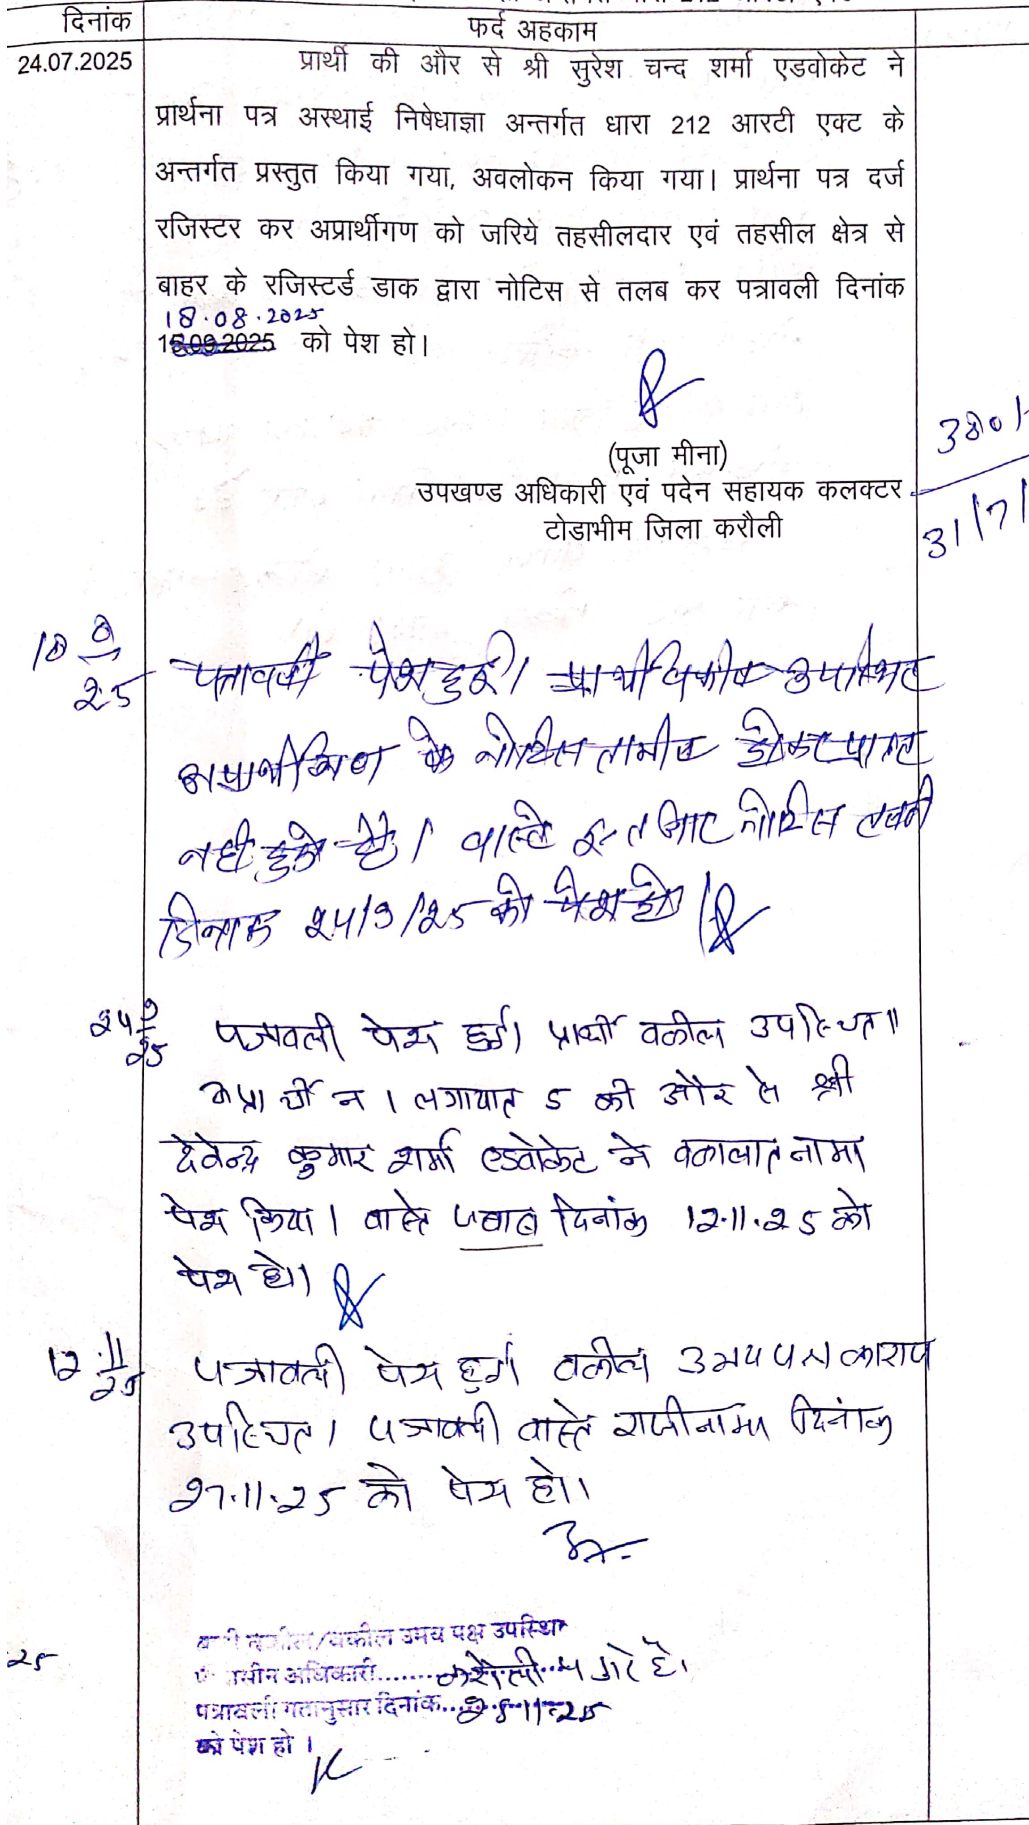 दिनांक
फर्द अहकाम
24.07.2025
प्रार्थी की और से श्री सुरेश चन्द शर्मा एडवोकेट ने
प्रार्थना पत्र अस्थाई निषेधाज्ञा अन्तर्गत धारा 212 आरटी एक्ट के
अन्तर्गत प्रस्तुत किया गया, अवलोकन किया गया। प्रार्थना पत्र दर्ज
रजिस्टर कर अप्रार्थीगण को जरिये तहसीलदार एवं तहसील क्षेत्र से
बाहर के रजिस्टर्ड डाक द्वारा नोटिस से तलब कर पत्रावली दिनांक
18.08.2025
को पेश हो।
(पूजा मीना)
उपखण्ड अधिकारी एवं पदेन सहायक कलक्टर
टोडाभीम जिला करौली
31/7/
25 पत्रावली पेश हुई। प्रार्थी वकील उपस्थित
अप्रार्थीगण के नोटिस तामील होकर प्राप्त
नही हुये है। वास्ते इन्तजार नोटिस तलबी
दिनांक 24/9/25 को पेश हो।
24 9
25
पत्रावली पेश हुई। प्रार्थी वकील उपस्थित॥
अप्रार्थी न 1 लगायात 5 की और से श्री
देवेन्द्र कुमार शर्मा एडवोकेट ने वकालातनामा
पेश किया। वास्ते जवाब दिनांक 12.11.25 को
पेश हो।
12.11
25
पत्रावली पेश हुई वकील उभयपक्षकारान
उपस्थित। पत्रावली वास्ते राजीनामा दिनांक
27.11.25 को पेश हो।
25
वकील/वकील उभय पक्ष उपस्थित
अधिकारी........करौली..गये है।
पत्रावली गतानुसार दिनांक
को पेश हो।